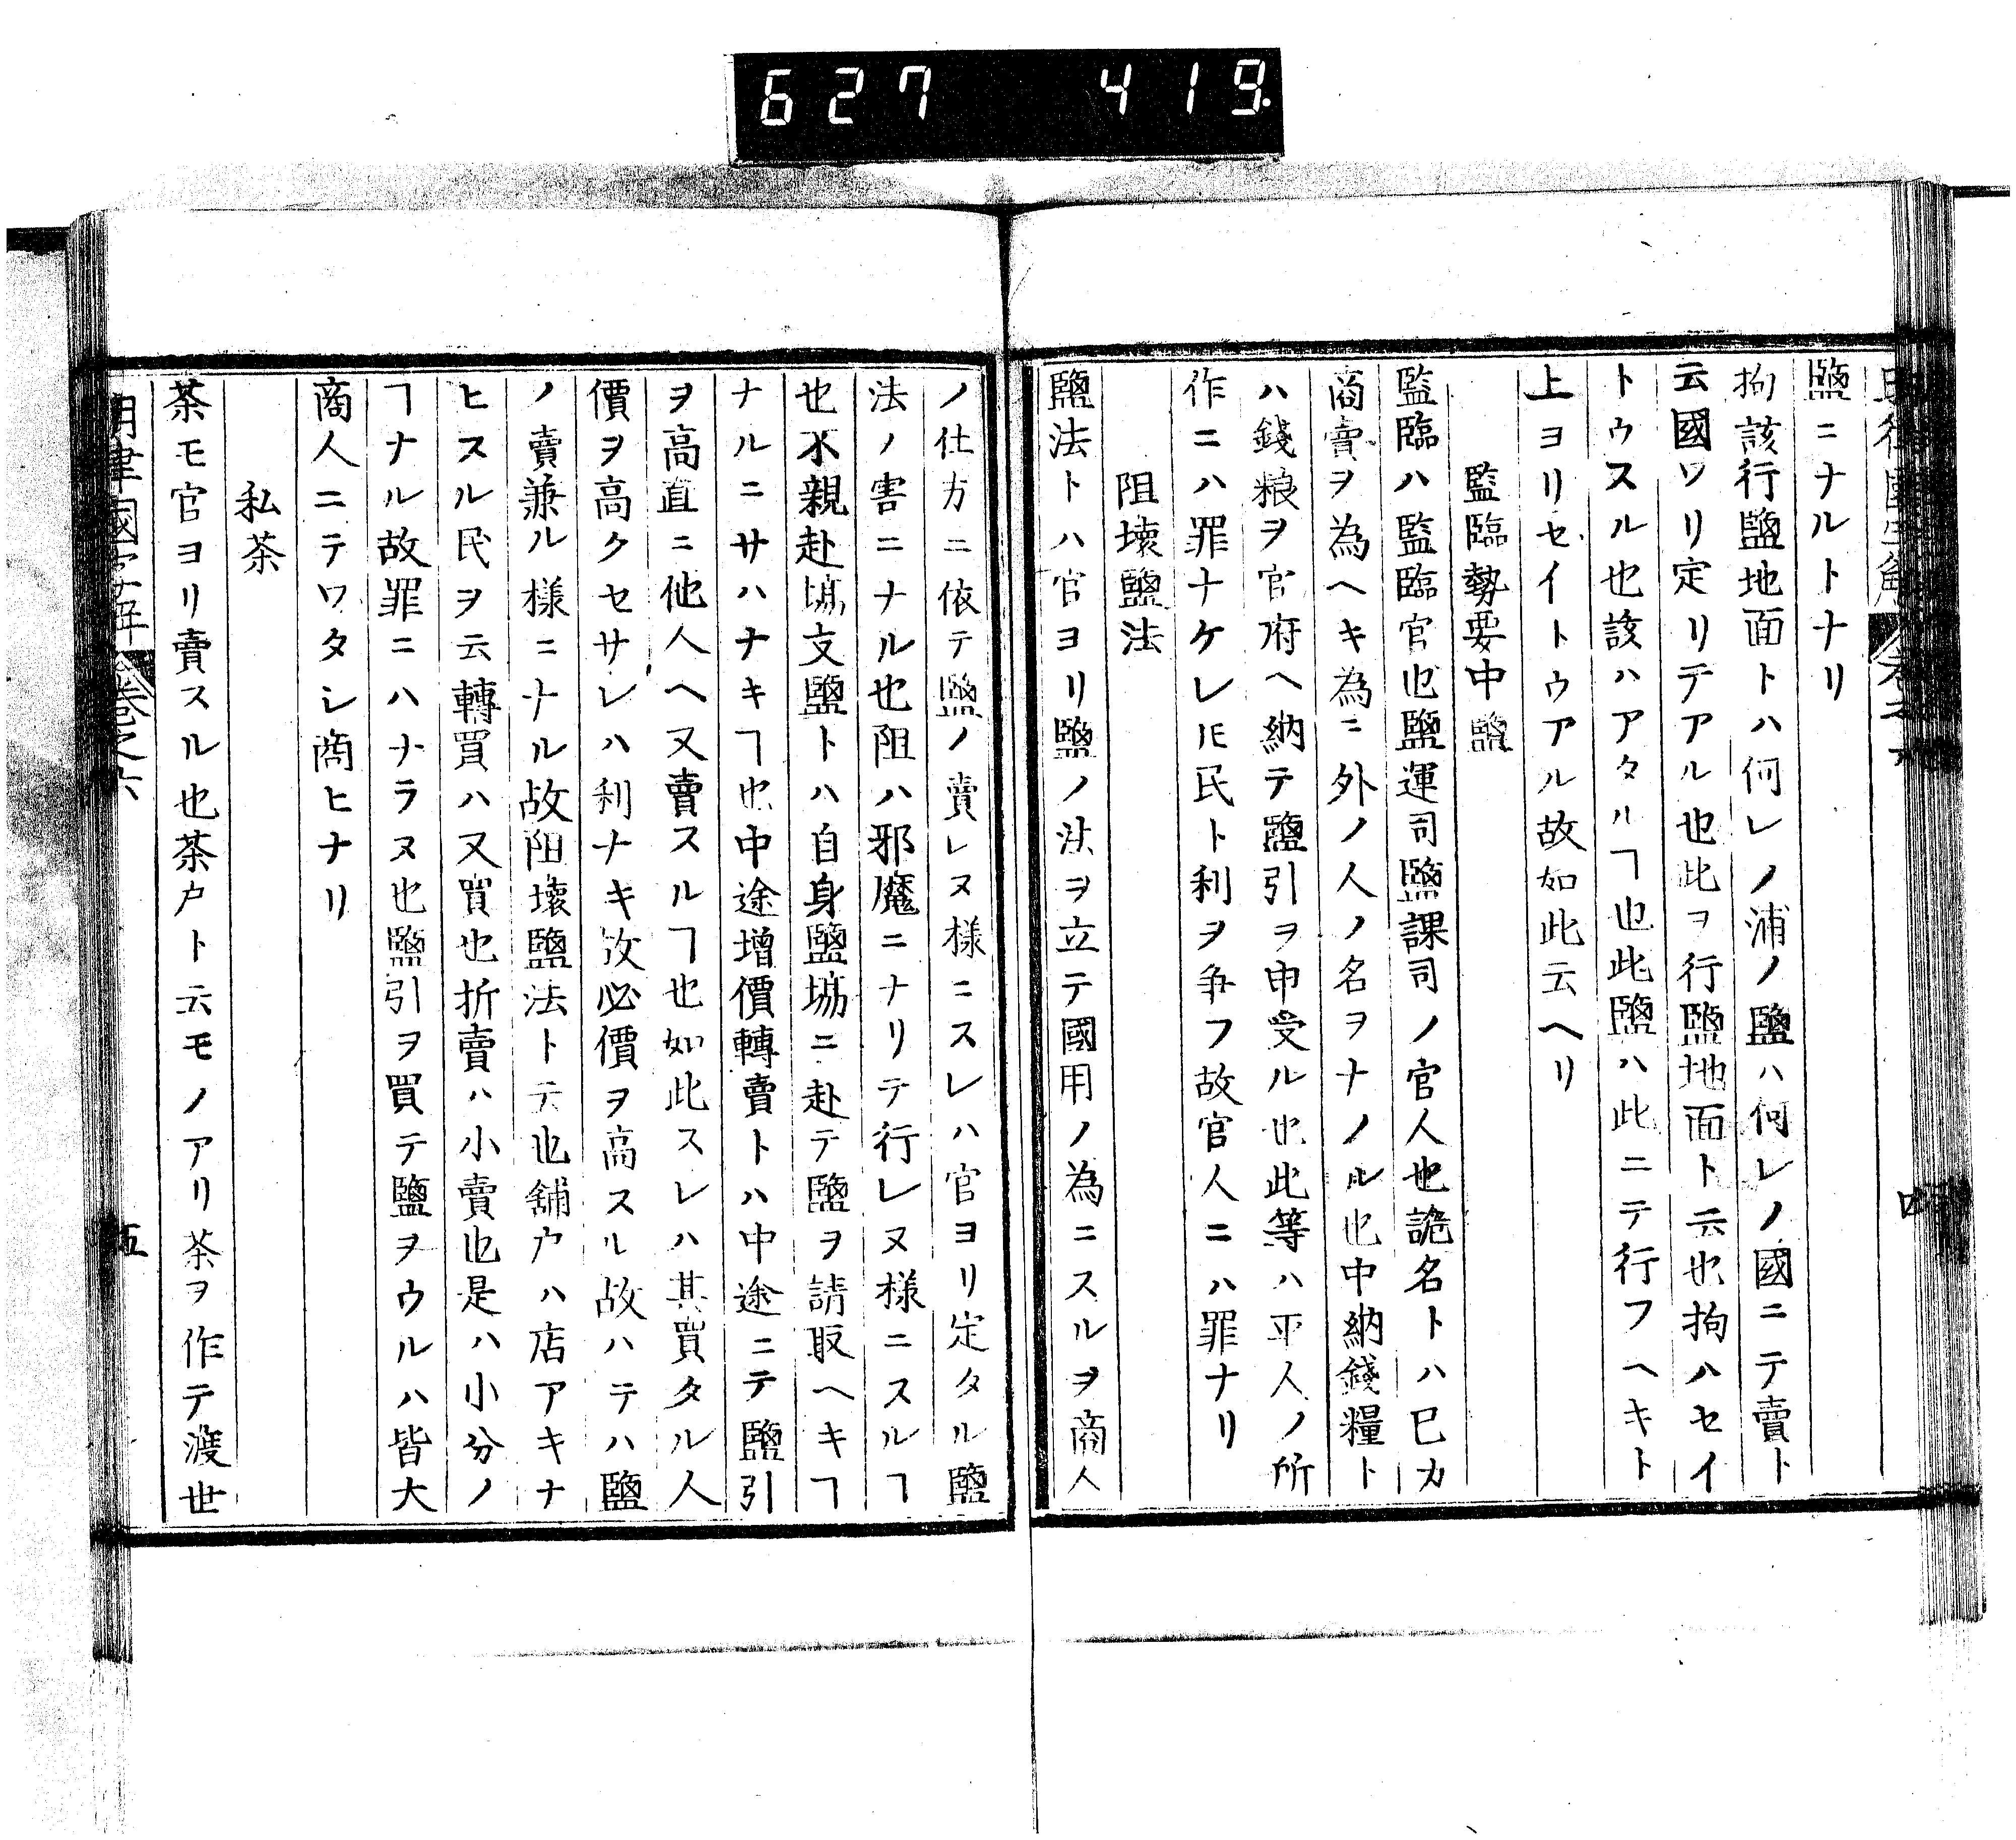 627 419
鹽ニナルトナリ
拘該行鹽地面トハ何レノ浦ノ鹽ハ何レノ國ニテ賣ト
云國ワリ定リテアル也此ヲ行鹽地面ト云也拘ハセイ
トウスル也該ハアタルヿ也此鹽ハ此ニテ行フヘキト
上ヨリセイトウアル故如此云ヘリ
監臨勢要中鹽
監臨ハ監臨官也鹽運司鹽課司ノ官人也詭名トハ已カ
商賣ヲ為ヘキ為ニ外ノ人ノ名ヲナノル也中納錢糧ト
ハ錢粮ヲ官府ヘ納テ鹽引ヲ申受ル也此等ハ平人ノ所
作ニハ罪ナケレ𪜈民ト利ヲ爭フ故官人ニハ罪ナリ
阻壞鹽法
鹽法トハ官ヨリ鹽ノ法ヲ立テ國用ノ為ニスルヲ商人
ノ仕方ニ依テ鹽ノ賣レヌ様ニスレハ官ヨリ定タル鹽
法ノ害ニナル也阻ハ邪魔ニナリテ行レヌ様ニスルヿ
也不親赴塲支鹽トハ自身鹽塲ニ赴テ鹽ヲ請取ヘキヿ
ナルニサハナキヿ也中途增價轉賣トハ中途ニテ鹽引
ヲ高直ニ他人ヘ又賣スルヿ也如此スレハ其買タル人
價ヲ高クセサレハ利ナキ故必價ヲ高スル故ハテハ鹽
ノ賣兼ル様ニナル故阻壞鹽法ト云也舖户ハ店アキナ
ヒスル民ヲ云轉買ハ又買也折賣ハ小賣也是ハ小分ノ
ヿナル故罪ニハナラヌ也鹽引ヲ買テ鹽ヲウルハ皆大
商人ニテワタシ商ヒナリ
私茶
茶モ官ヨリ賣スル也茶户ト云モノアリ茶ヲ作テ渡世
卷之六
五